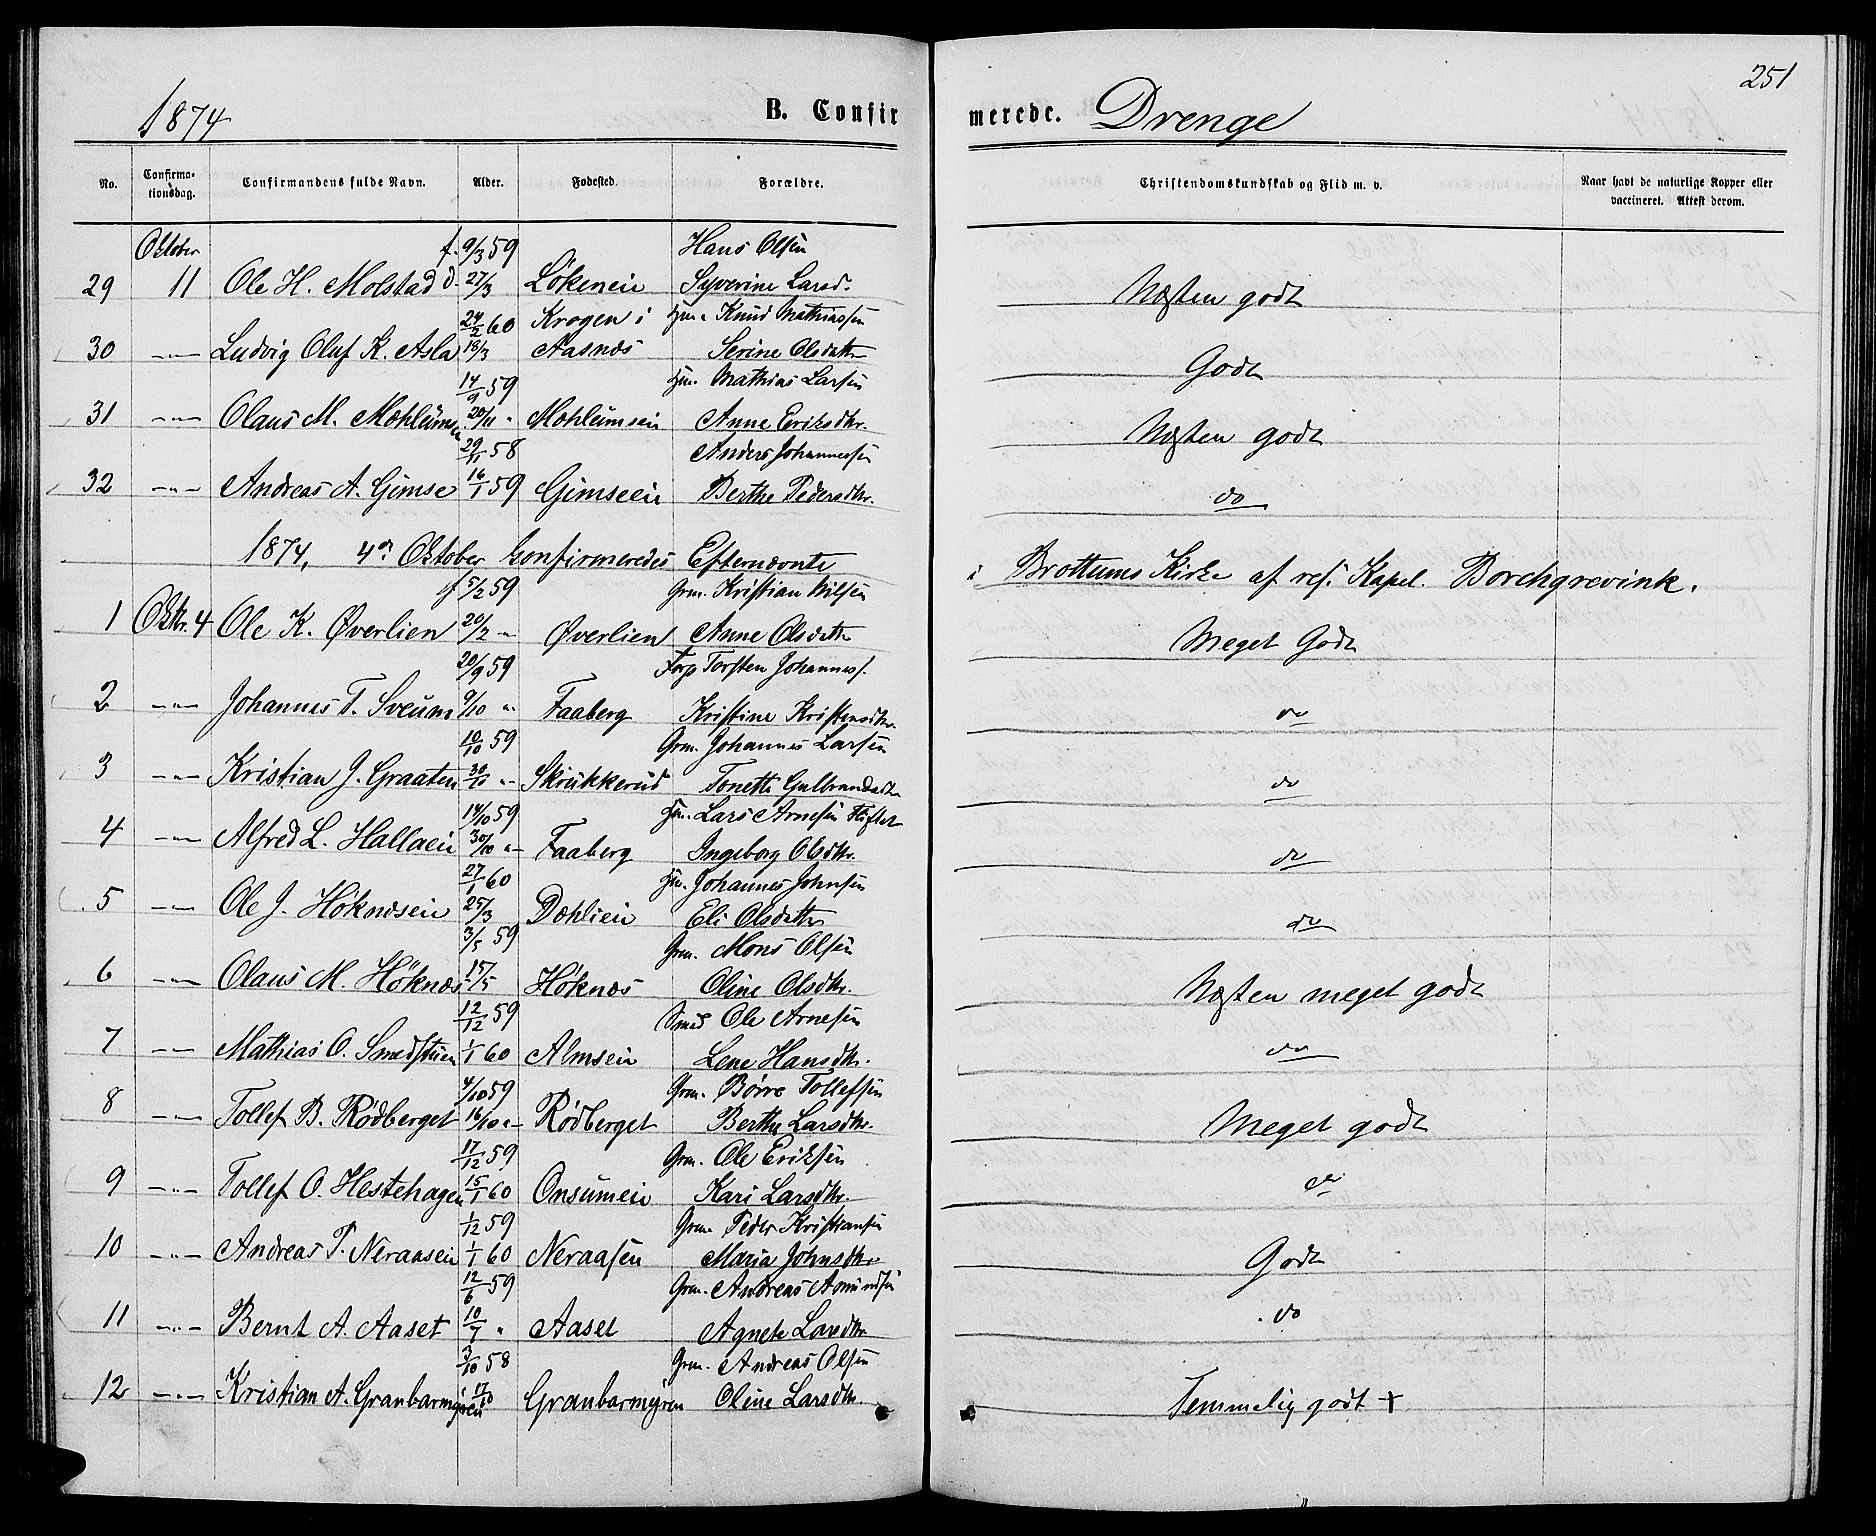 1874 B. Confirmerede. Drenge 251
No. Confirmationsdag. Confirmandens fulde Navn. Alder. Fødested. Forældre. Christendomskundskab og Flid m. v. Naar havt de naturlige Kopper eller vaccineret. Attest derom.
Oktober f. 9/3 59 Hans Olsen
29 11 Ole H. Molstad d. 27/3 Lökeneie Syverine Larsd. Næsten godt
24/2 60 Krogen i Hm. Knud Mathiassen
30 -"- Ludvig Oluf K. Asla 18/3 Aasnæs Serine Olsdatter Godt
14/9 59 Hm. Mathias Larsen
31 -"- Olaus M. Mæhlumseie 20/11 " Mæhlumseie Anne Eriksdtr. Næsten godt
29/11 58 Anders Johannessen
32 -"- Andreas A. Gimse 16/1 59 Gimseeie Berthe Pedersdtr. do
1874, 4de Oktober konfirmeredes Efternævnte i Brøttums Kirke af res. Kapel. Borchgrevink.
f 5/2 59 Grm. Kristian Nilsen
1 Oktr. 4 Ole K. Øverlien 20/2 " Øverlien Anne Olsdatter Meget Godt
20/9 59 Forp Torsten Johannes.
2 -"- Johannes T. Sveum 9/10 " Faaberg Kristine Kristensdtr. do
10/10 59 Grm. Johannes Larsen
3 -"- Kristian J. Graaten 30/10 " Skrukkerud Tonette Gulbrandsdtr do
14/10 59 Hm. Lars Arnesen
4 -"- Alfred L. Hallaeie 30/10 " Faaberg Ingeborg Olsdtr. do
27/1 60 Hm. Johannes Johnsen
5 -"- Ole J. Höknæseie 25/3 Dæhlieie Eli Olsdatter do
3/5 59 Grm. Mons Olsen
6 -"- Olaus M. Höknæs 15/5 Höknæs Oline Olsdtr. Næsten meget godt
12/12 59 Smed Ole Arnesen
7 -"- Mathias O. Smedstuen 1/1 60 Almseie Lene Hansdtr. do
4/10 59 Grm. Børre Tollefsen
8 -"- Tollef B. Rødberget 16/10 " Rødberget Berthe Larsdtr. Meget godt
17/12 59 Grm. Ole Eriksen
9 -"- Tollef O. Hestehagen 15/1 60 Onsumeie Kari Larsdtr. do
1/12 59 Grm. Peder Kristiansen
10 -"- Andreas P. Neraasen 1/1 60 Neraasen Maria Johnsdtr. Godt
12/6 59 Grm. Andreas Amundsen
11 -"- Bernt A. Aaset 10/7 " Aaset Agnete Larsdtr. do
3/10 58 Grm. Andreas Olsen
12 -"- Kristian A. Granbarmyren 17/10 Granbarmyren Oline Larsdtr. Temmelig godt +